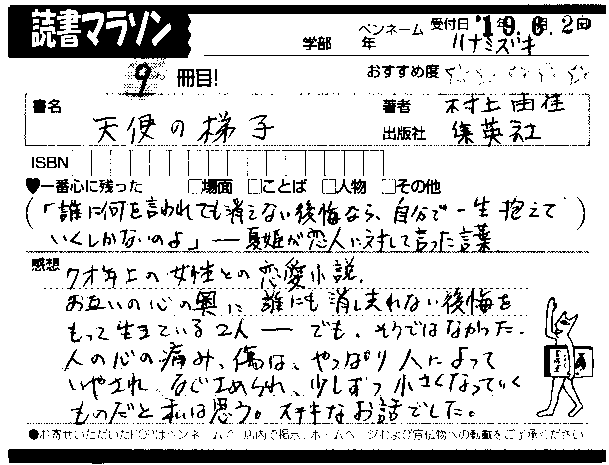 読書マラソン
ペンネーム 受付日 '19.6.2日
学部 年 ハナミズキ
9 冊目!
おすすめ度
書名 天使の梯子
著者 村上由佳
出版社 集英社
ISBN
♥一番心に残った □場面 □ことば □人物 □その他
(「誰に何を言われても消えない後悔なら、自分で一生抱えて
いくしかないのよ」―夏姫が恋人に対して言った言葉)
感想 7才年上の女性との恋愛小説。
お互いの心の奥に誰にも消し去れない後悔を
もって生きている2人― でも、そうではなかった。
人の心の痛み、傷は、やっぱり人によって
いやされ、なぐさめられ、少しずつ小さくなっていく
ものだと私は思う。ステキなお話でした。
●お寄せいただいたPOPはペンネームで、店内で掲示、ホームページおよび宣伝物への転載をご了承ください